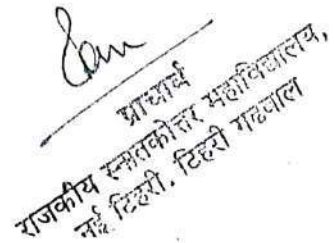 प्राचार्य
राजकीय स्नातकोत्तर महाविद्यालय,
नई टिहरी, टिहरी गढवाल